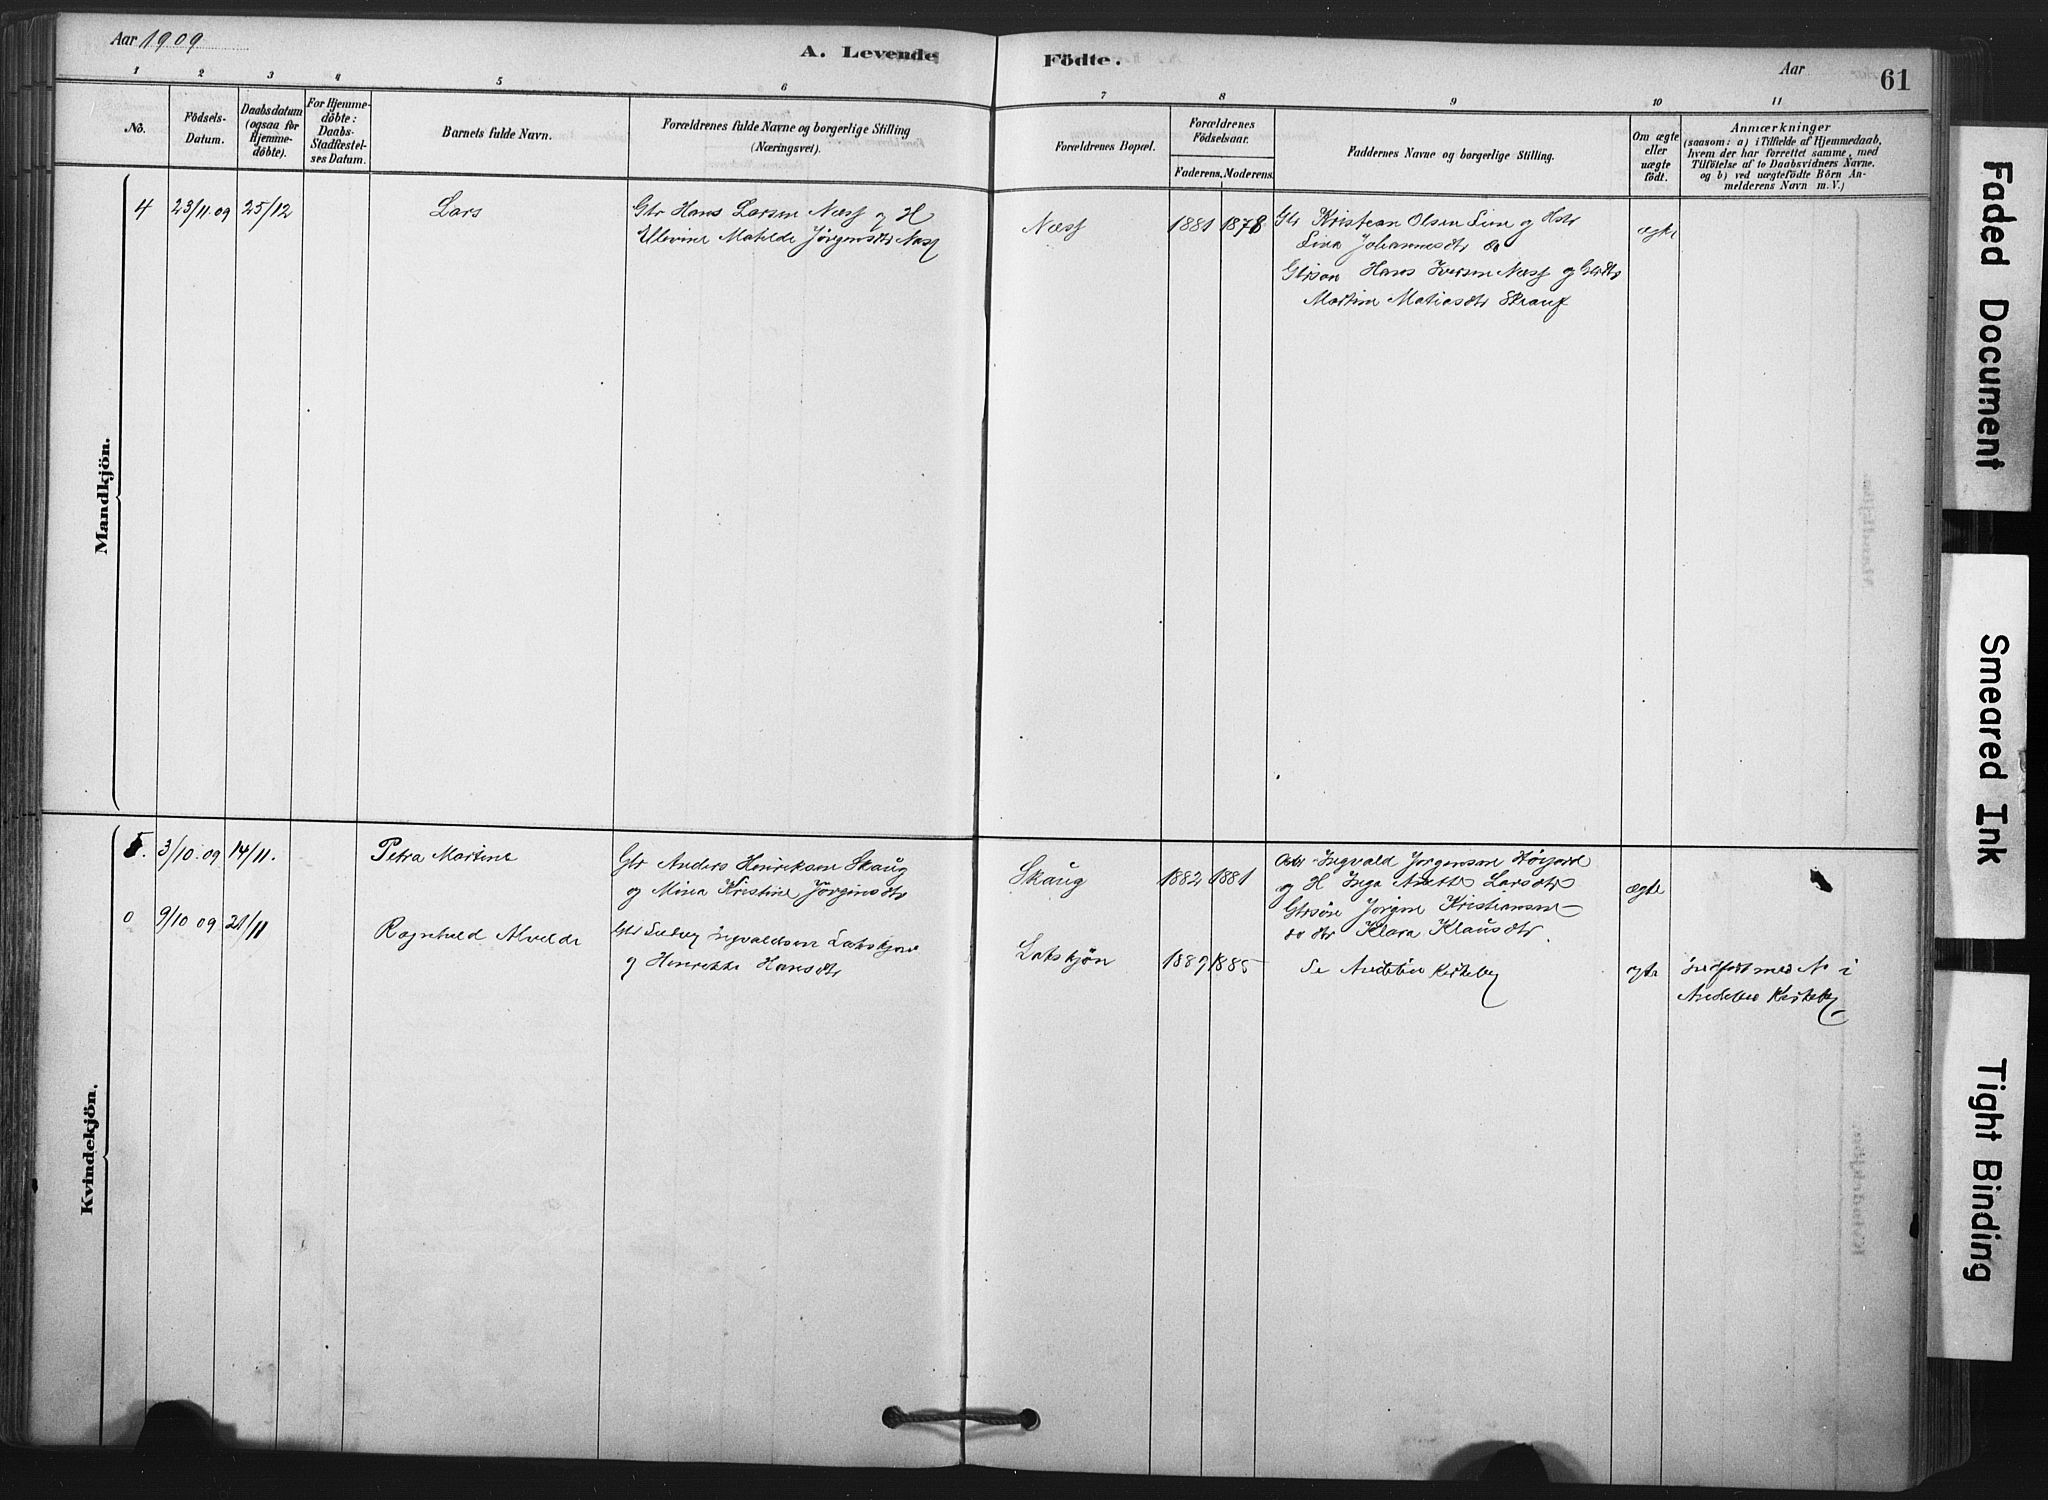 Aar 1909
A. Levende Födte.
Aar
61
1 2 3 4 5 6 7 8 9 10 11
No.
Födsels-
Datum.
Daabsdatum
(ogsaa for
Hjemme-
döbte).
For Hjemme-
döbte:
Daabs-
Stadfæstel-
ses Datum.
Barnets fulde Navn.
Forældrenes fulde Navne og borgerlige Stilling
(Næringsvei).
Forældrenes Bopæl.
Forældrenes
Födselsaar.
Faderens. Moderens.
Faddernes Navne og borgerlige Stilling.
Om ægte
eller
uægte
födt.
Anmærkninger
(saasom: a) i Tilfælde af Hjemmedaab,
hvem der har forrettet samme, med
Tilföielse af to Daabsvidners Navne,
og b) ved uægtefödte Börn An-
melderens Navn m. V.)
Mandkjön.
4 23/11 09 25/12
Lars
Gbr Hans Larsen Næss og H
Ellevine Matilde Jörgensdtr Næss
Næss
1881 1878
Gbr Kristian Olsen Sime og Hstr
Lina Johannesdtr
Gbrsøn Hans Iversen Næss og Gbrdtr
Martine Matiasdtr Skaug
ægte
Kvindekjön.
5. 3/10.09 14/11.
Petra Martine
Gbr Anders Henriksen Skaug
og Mina Kristine Jörgensdtr
Skaug
1882 1881
Ingvald Jörgensen
og H Inga Anette Larsdtr
Gbrsön Jörgen Kristiansen
do dtr Klara Klausdtr
ægte
0 9/10 09 21/11
Ragnhild Alvilde
Gbr Ludvig Ingvaldsen Lakskjøn
og Henrikke Hansdtr
Lakskjön
1889 1885
Se Andebu Kirkebog
ægte
Indført med No i
Andebu Kirkebog
Faded Document
Smeared Ink
Tight Binding